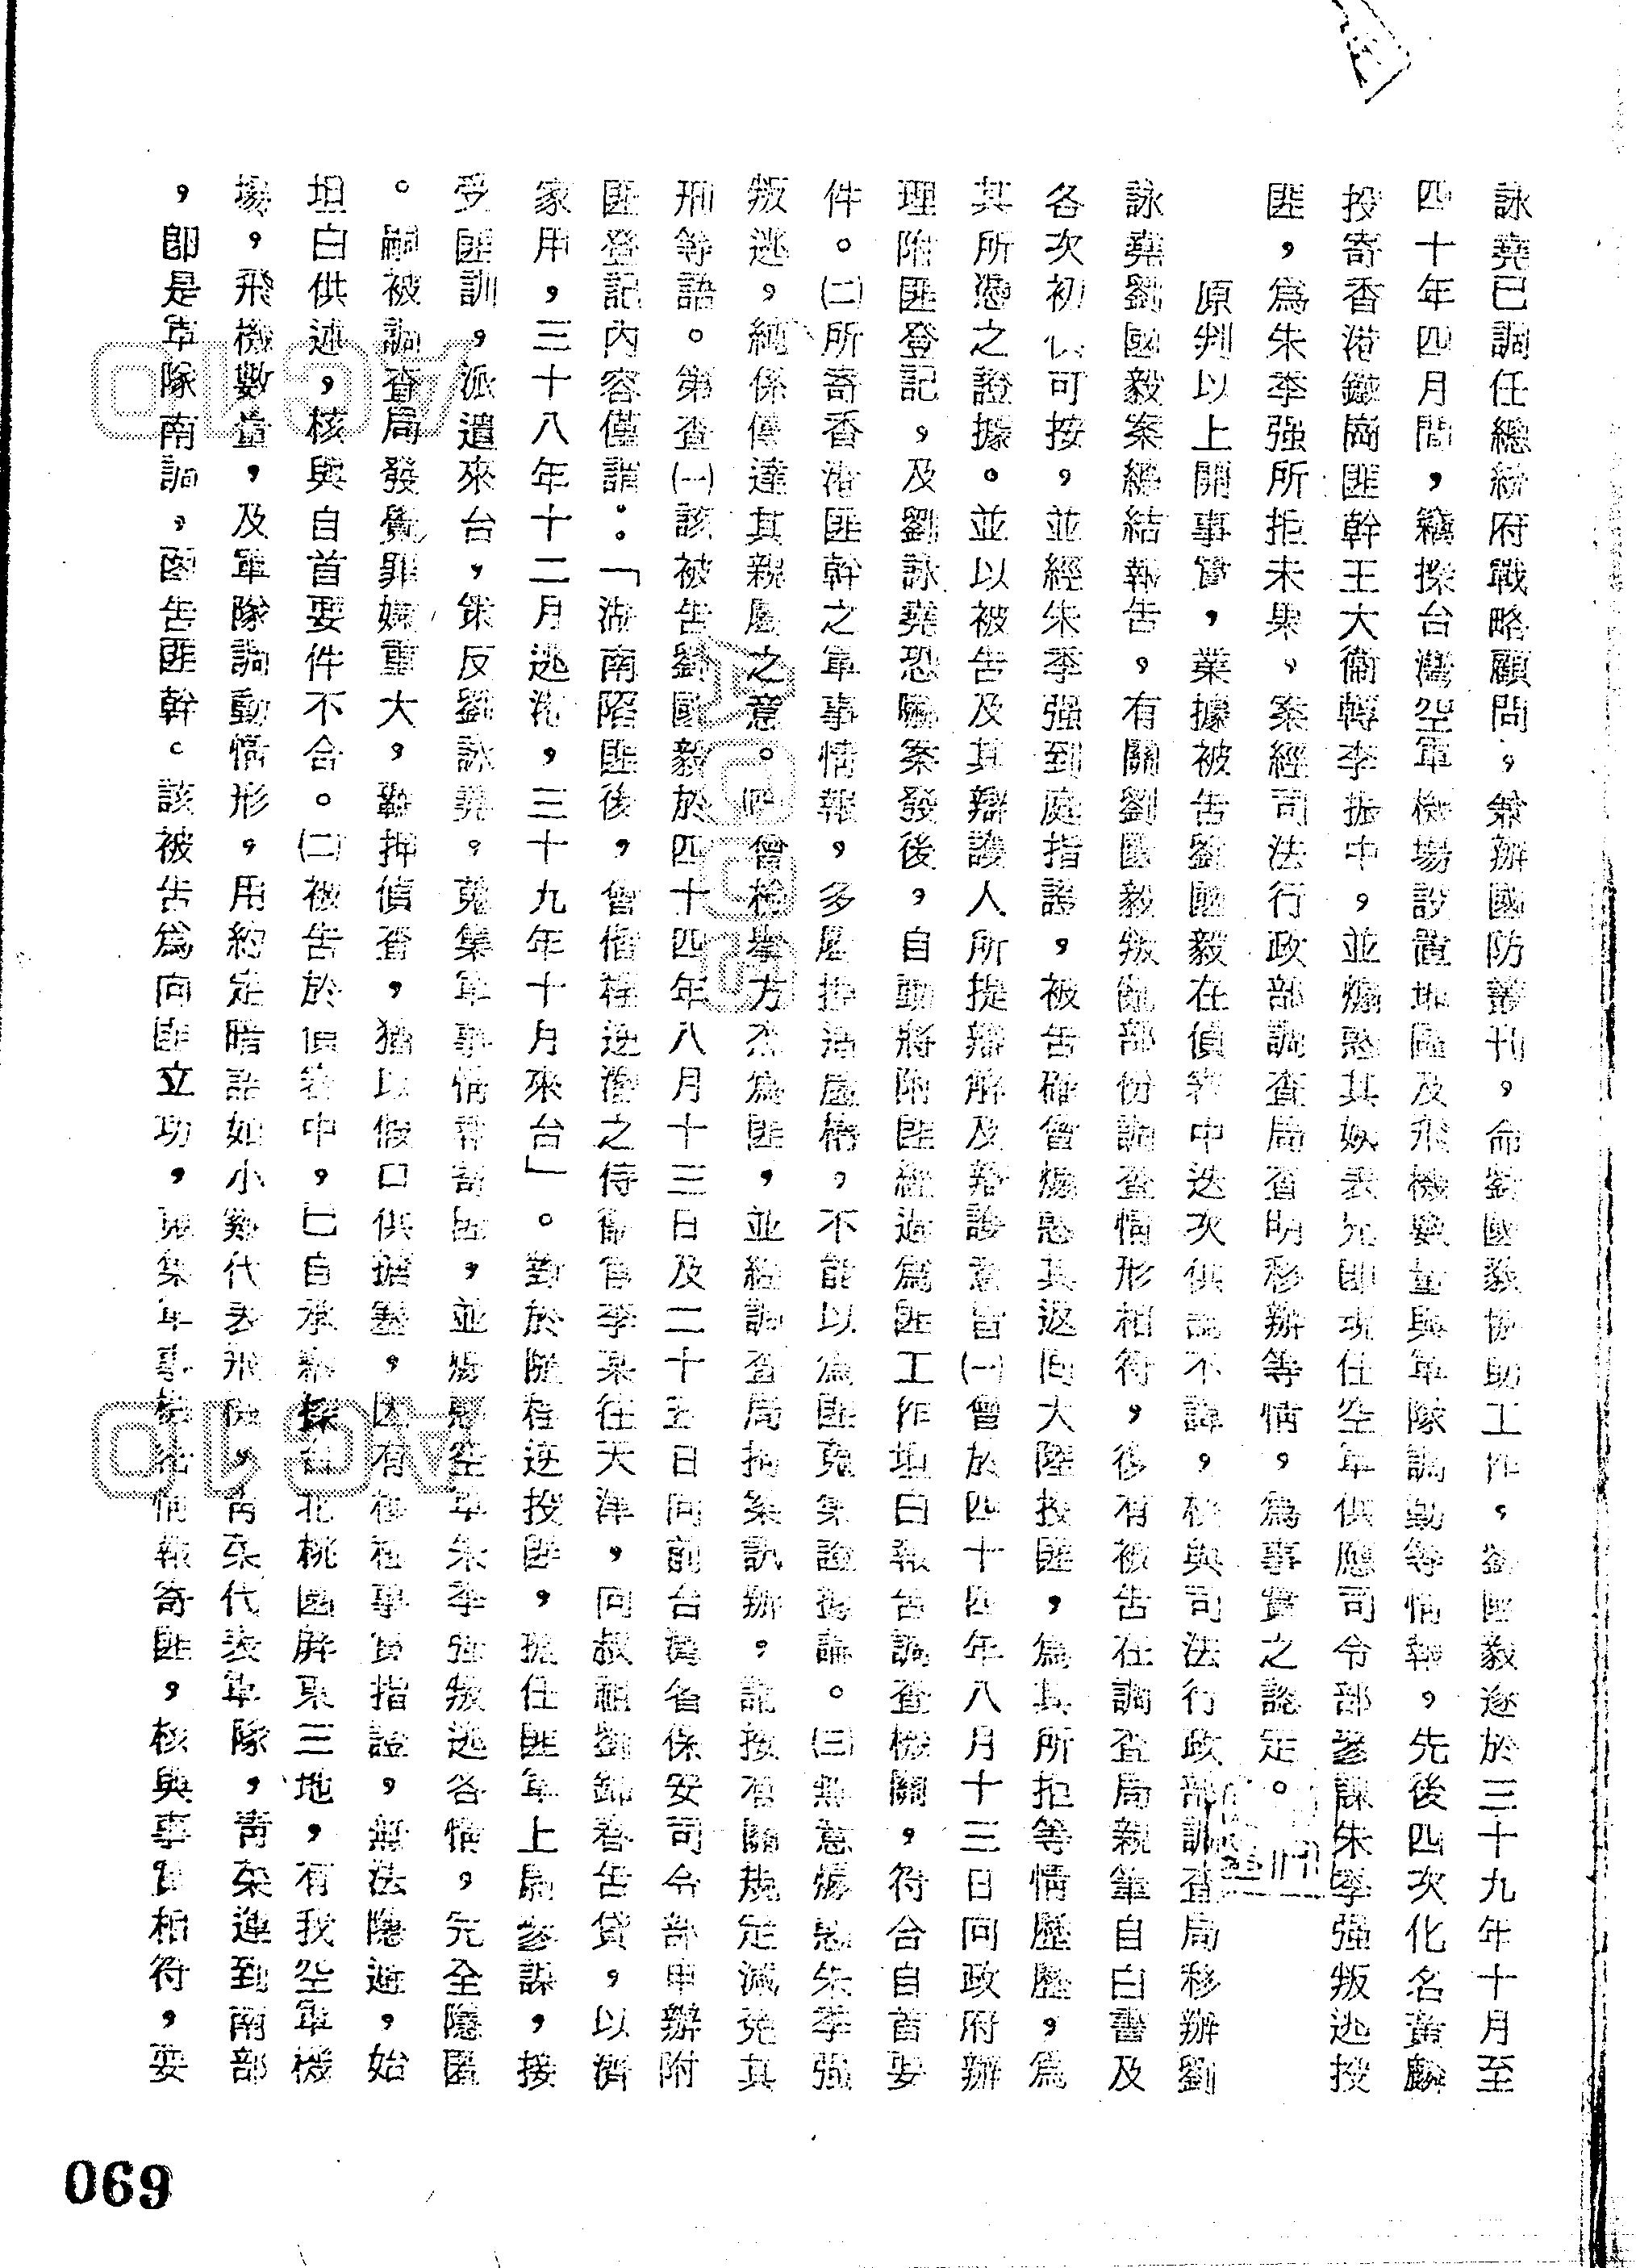 詠堯已調任總統府戰略顧問，兼辦國防叢刊，命劉國毅協助工作，劉國毅遂於三十九年十月至
四十年四月間，竊探台灣空軍機場設置地區及飛機數量與軍隊調動等情報，先後四次化名黃麟
投寄香港鑽崗匪幹王大衛轉李振中，並煽惑其姨表兄即現任空軍供應司令部參謀朱季强叛逃投
匪，為朱季强所拒未果，案經司法行政部調查局查明移辦等情，為事實之認定。
原判以上開事實，業據被告劉國毅在偵察中迭次供認不諱，核與司法行政部調查局移辦劉
詠堯劉國毅案經結報告，有關劉國毅叛亂部份調查情形相符，復有被告在調查局親筆自白書及
各次初供可按，並經朱季强到庭指證，被告確曾煽惑其返回大陸投匪，為其所拒等情歷歷，為
其所憑之證據。並以被告及其辯護人所提辯解及辯護意旨㈠曾於四十四年八月十三日向政府辦
理附匪登記，及劉詠堯恐嚇案發後，自動將附匪經過為匪工作坦白報告調查機關，符合自首要
件。㈡所寄香港匪幹之軍事情報，多屬拒活虛構，不能以為匪蒐集證據論。㈢無意煽惑朱季强
叛逃，純係傳達其親屬之意。㈣曾檢舉方杰為匪，並經調查局拘案訊辦，認按有關規定減免其
刑等語。第查㈠該被告劉國毅於四十四年八月十三日及二十五日向前台灣省保安司令部申辦附
匪登記內容僅謂：「湖南陷匪後，曾偕程逆潛之侍衛官李某往天津，向叔祖劉鄂春告貸，以濟
家用，三十八年十二月逃港，三十九年十月來台」。對於隨程逆投匪，擔任匪軍上尉參謀，接
受匪訓，派遣來台，策反劉詠堯。蒐集軍事情報寄匪，並煽惑空軍朱季强叛逃各情，完全隱匿
。嗣被調查局發覺罪嫌重大，羈押偵查，猶以假口供搪塞，因有種種事實指證，無法隱避，始
坦白供述，核與自首要件不合。㈡被告於偵察中，已自承竊探台北桃園屏東三地，有我空軍機
場，飛機數量，及軍隊調動情形，用約定暗語如小雞代表飛機，青菜代表軍隊，青菜運到南部
，即是軍隊南調，函告匪幹。該被告為向匪立功，蒐集軍事機密情報寄匪，核與事實相符，要
069